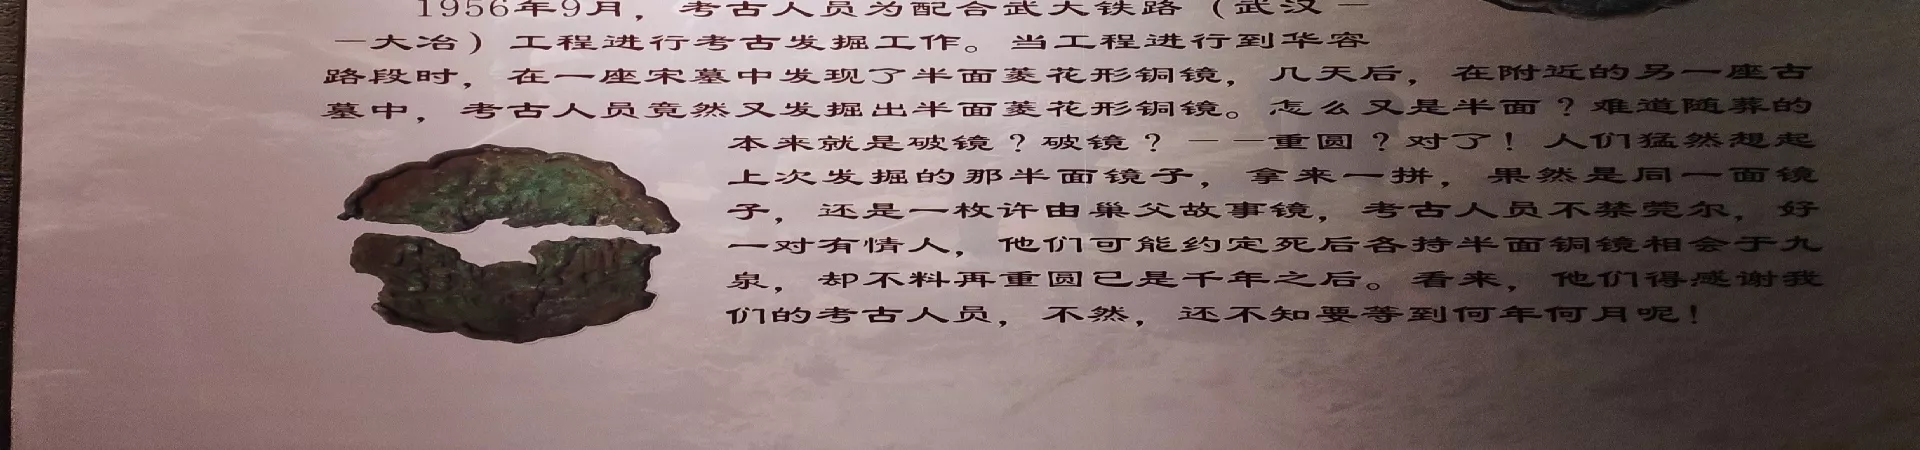 1956年9月，考古人员为配合武大铁路（武汉—
—大冶）工程进行考古发掘工作。当工程进行到华容
路段时，在一座宋墓中发现了半面菱花形铜镜，几天后，在附近的另一座古
墓中，考古人员竟然又发掘出半面菱花形铜镜。怎么又是半面？难道随葬的
本来就是破镜？破镜？——重圆？对了！人们猛然想起
上次发掘的那半面镜子，拿来一拼，果然是同一面镜
子，还是一枚许由巢父故事镜，考古人员不禁莞尔，好
一对有情人，他们可能约定死后各持半面铜镜相会于九
泉，却不料再重圆已是千年之后。看来，他们得感谢我
们的考古人员，不然，还不知要等到何年何月呢！